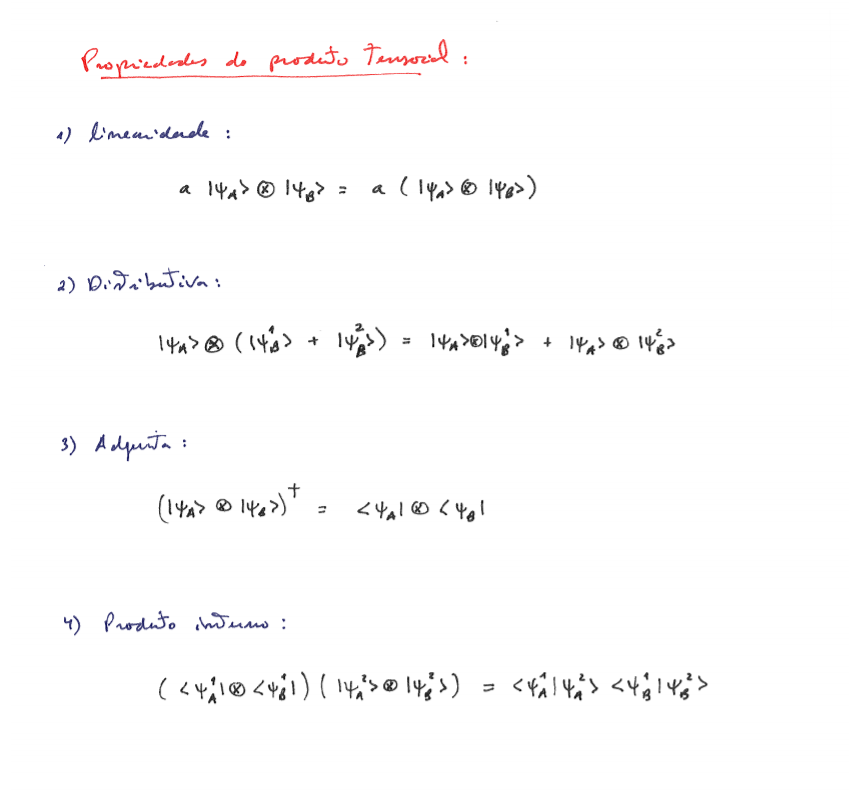 Propriedades do produto tensorial :
1) linearidade :
a |ψ_A> ⊗ |ψ_B> = a ( |ψ_A> ⊗ |ψ_B> )
2) Distributiva :
|ψ_A> ⊗ ( |ψ_B^1> + |ψ_B^2> ) = |ψ_A> ⊗ |ψ_B^1> + |ψ_A> ⊗ |ψ_B^2>
3) Adjunta :
( |ψ_A> ⊗ |ψ_B> )^† = <ψ_A| ⊗ <ψ_B|
4) Produto interno :
( <ψ_A^1| ⊗ <ψ_B^1| ) ( |ψ_A^2> ⊗ |ψ_B^2> ) = <ψ_A^1|ψ_A^2> <ψ_B^1|ψ_B^2>